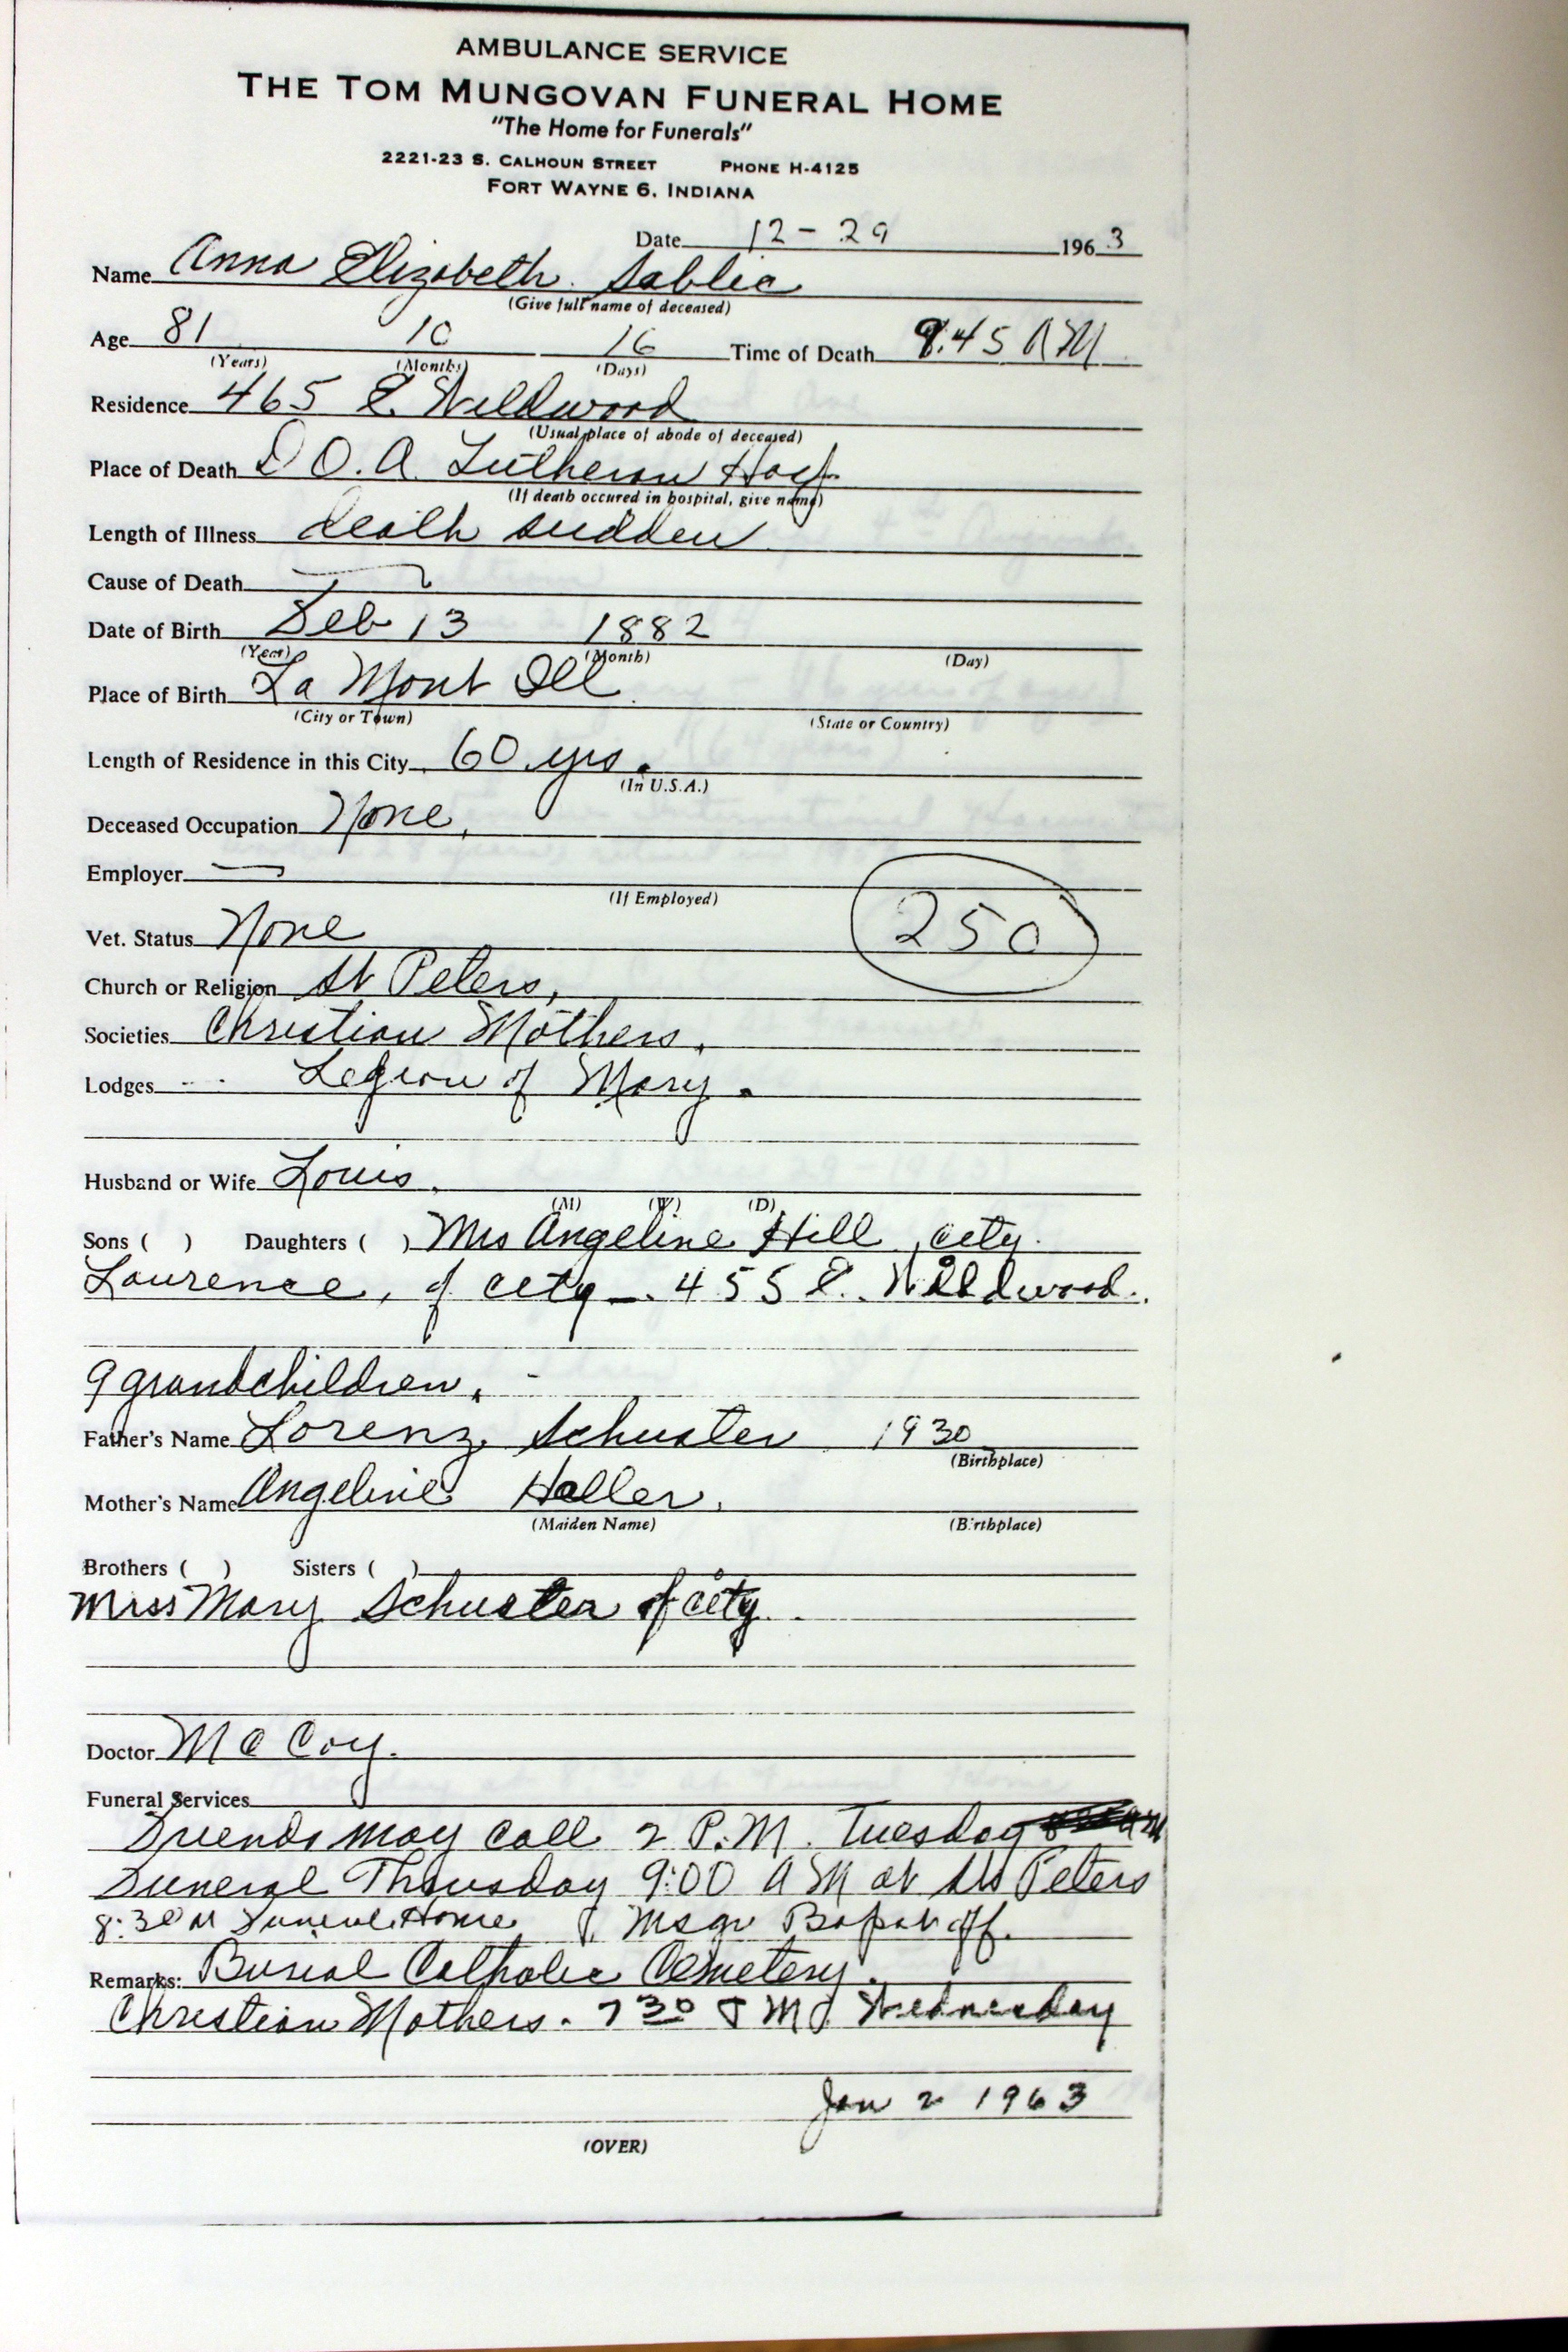 AMBULANCE SERVICE
THE TOM MUNGOVAN FUNERAL HOME
"The Home for Funerals"
2221-23 S. CALHOUN STREET PHONE H-4125
FORT WAYNE 6, INDIANA
Date 12-29 1963
Name Anna Elizabeth Sablic
(Give full name of deceased)
Age 81 10 16 Time of Death 9:45 AM
(Years) (Months) (Days)
Residence 465 E. Wildwood
(Usual place of abode of deceased)
Place of Death D O.A. Lutheran Hosp.
(If death occured in hospital, give name)
Length of Illness death sudden
Cause of Death
Date of Birth Feb 13 1882
(Year) (Month) (Day)
Place of Birth La Mont Ill
(City or Town) (State or Country)
Length of Residence in this City 60 yrs.
(In U.S.A.)
Deceased Occupation None,
Employer —
(If Employed)
250
Vet. Status None
Church or Religion St Peters,
Societies Christian Mothers,
Lodges Legion of Mary.
Husband or Wife Louis.
(M) (W) (D)
Sons ( ) Daughters ( ) Mrs Angeline Hill, city.
Laurence, of city - 455 E. Wildwood.
9 grandchildren,
Father's Name Lorenz Schuster 1930
(Birthplace)
Mother's Name Angeline Haller,
(Maiden Name) (Birthplace)
Brothers ( ) Sisters ( )
Miss Mary Schuster of city.
Doctor McCoy.
Funeral Services
Friends may call 2 P.M. Tuesday
Funeral Thursday 9:00 AM at St Peters
8:30 Funeral Home Msgr
Remarks: Burial Catholic Cemetery.
Christian Mothers. 7 30 Wednesday
Jan 2 1963
(OVER)